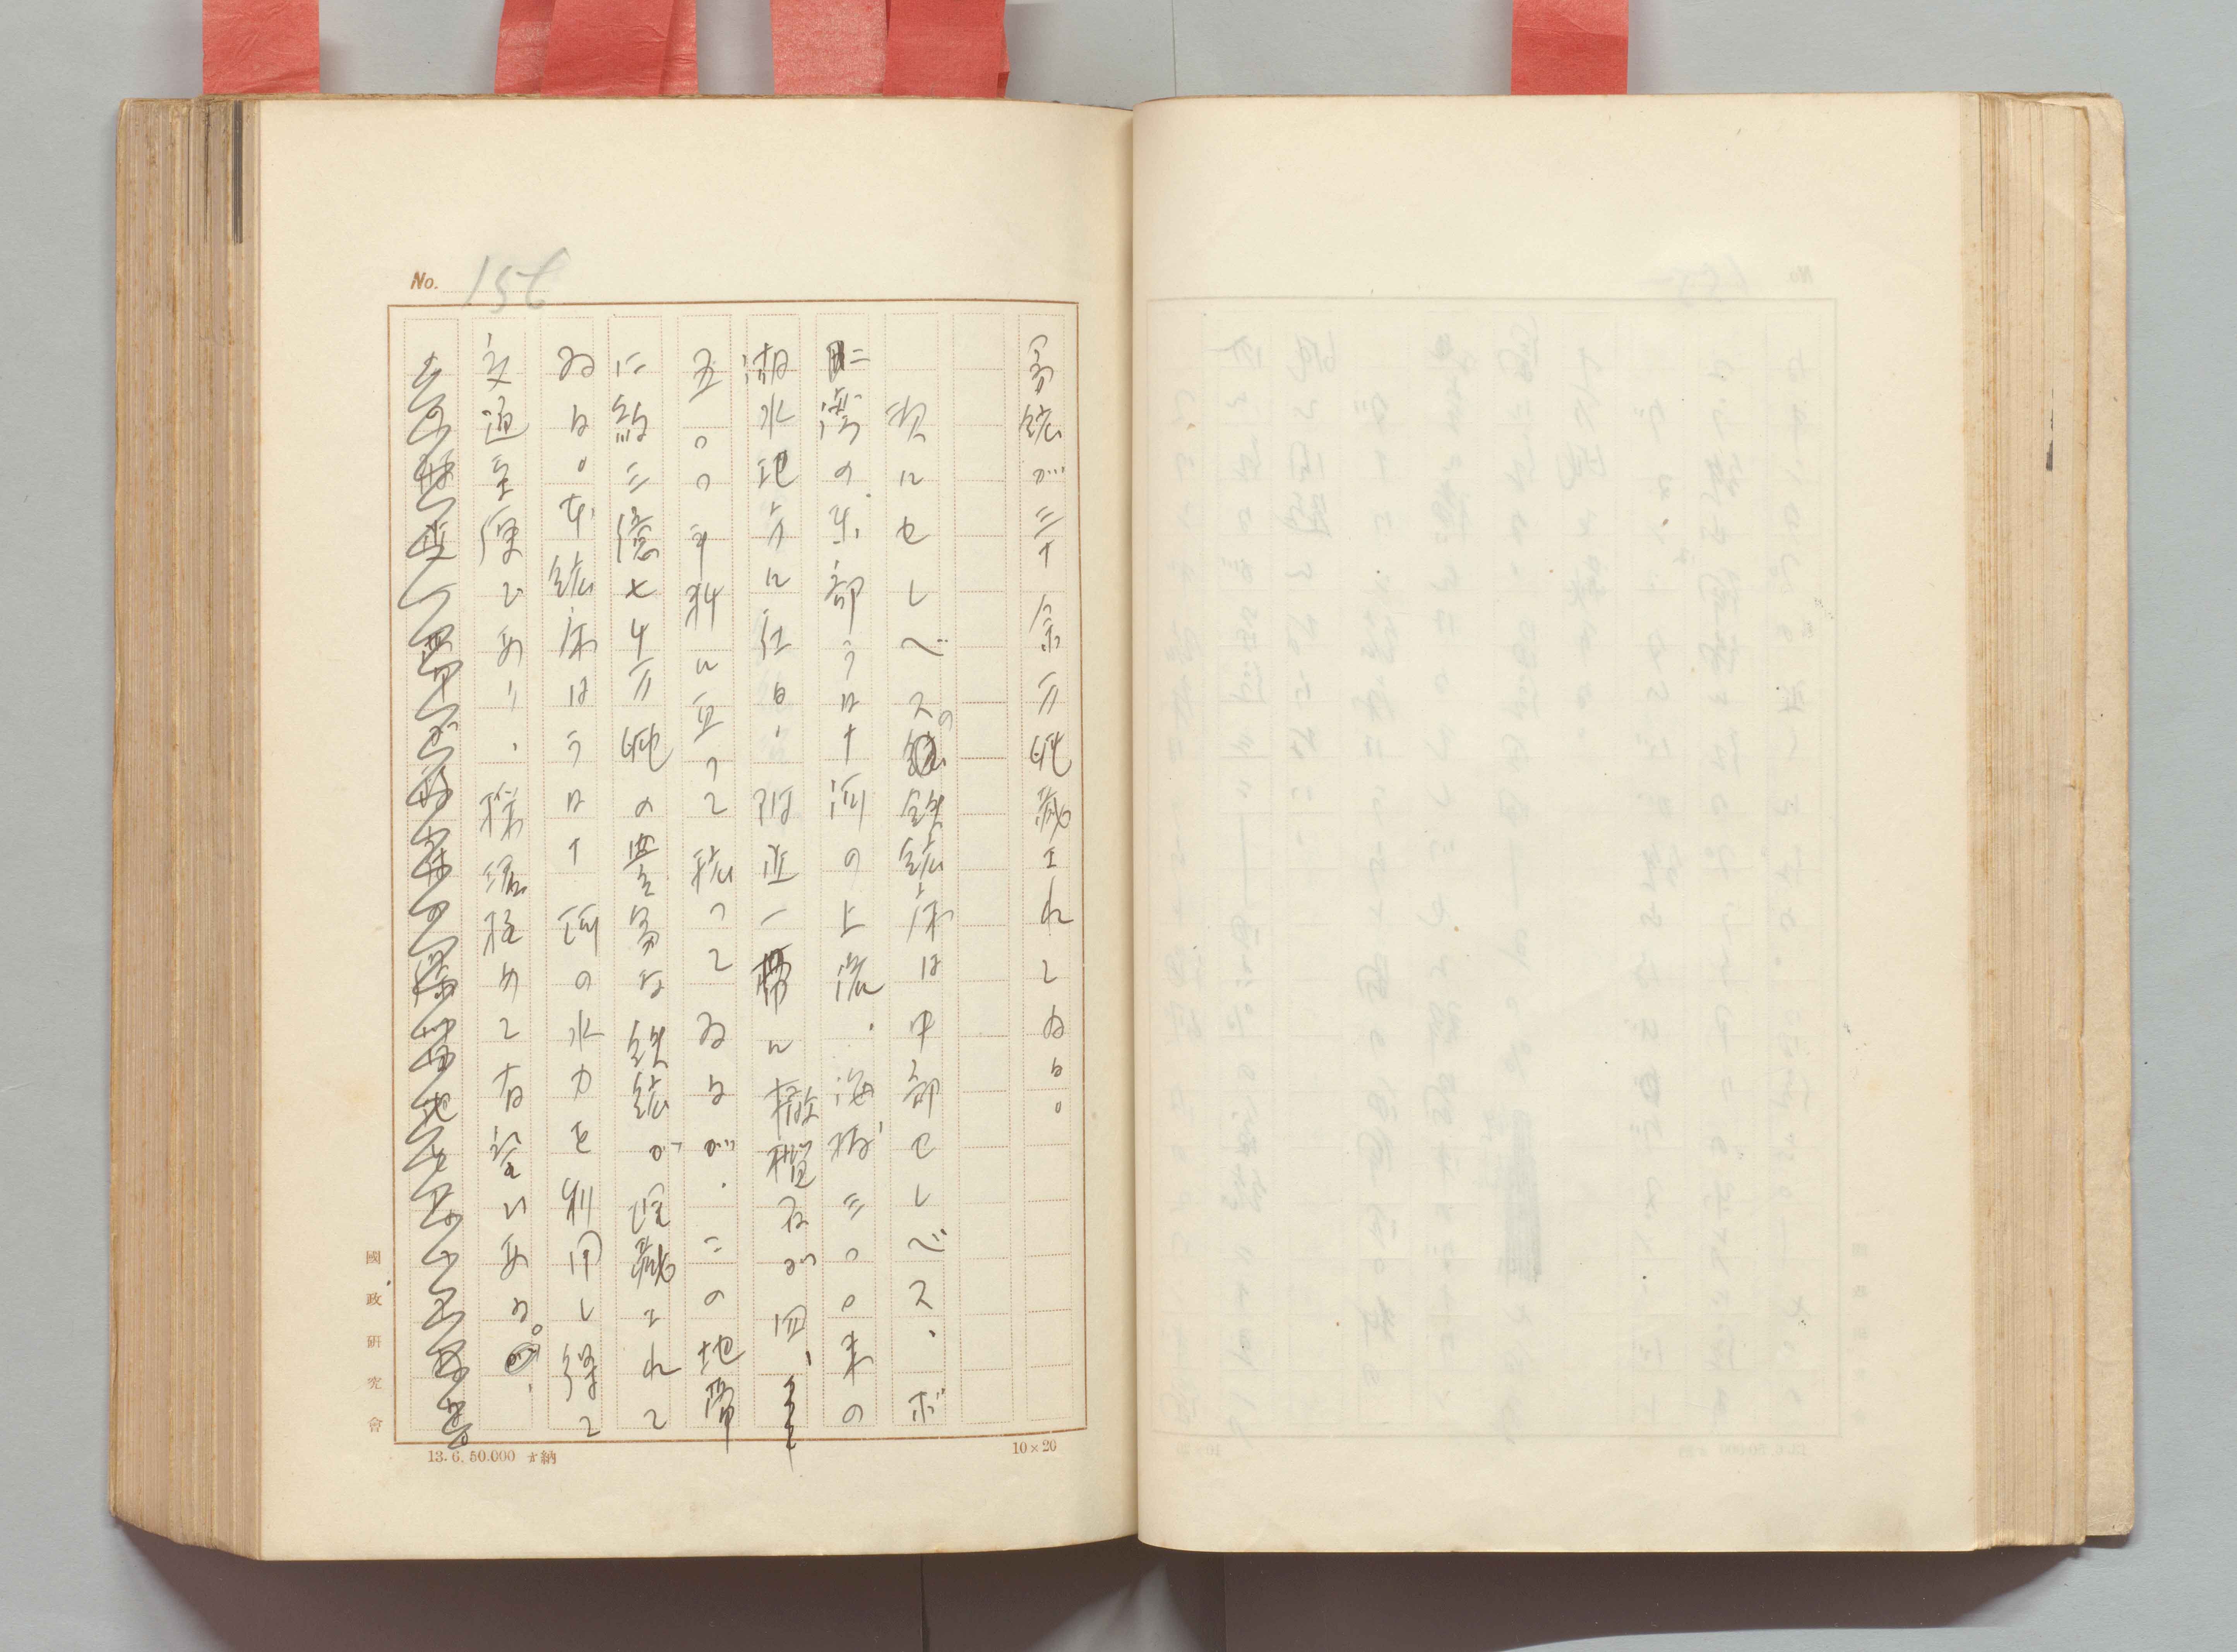 No. 156
富鉱が三千余万砘蔵されてゐる。
次にセレベスの鉄鉱床は中部セレベス、ボ
ニ湾の東部ラロナ河の上流、海抜三〇〇米の
湖水地方に在る、附近一帯に橄欖石が四、
五〇〇平粁に亘つて拡つてゐるが、この地帯
に約三億七千万砘の豊富な鉄鉱が埋蔵されて
ゐる。本鉱床はラロナ河の水力を利用し得て
交通至便であり、採掘極めて有望である。
國政研究會
13. 6. 50.000 納
10×20